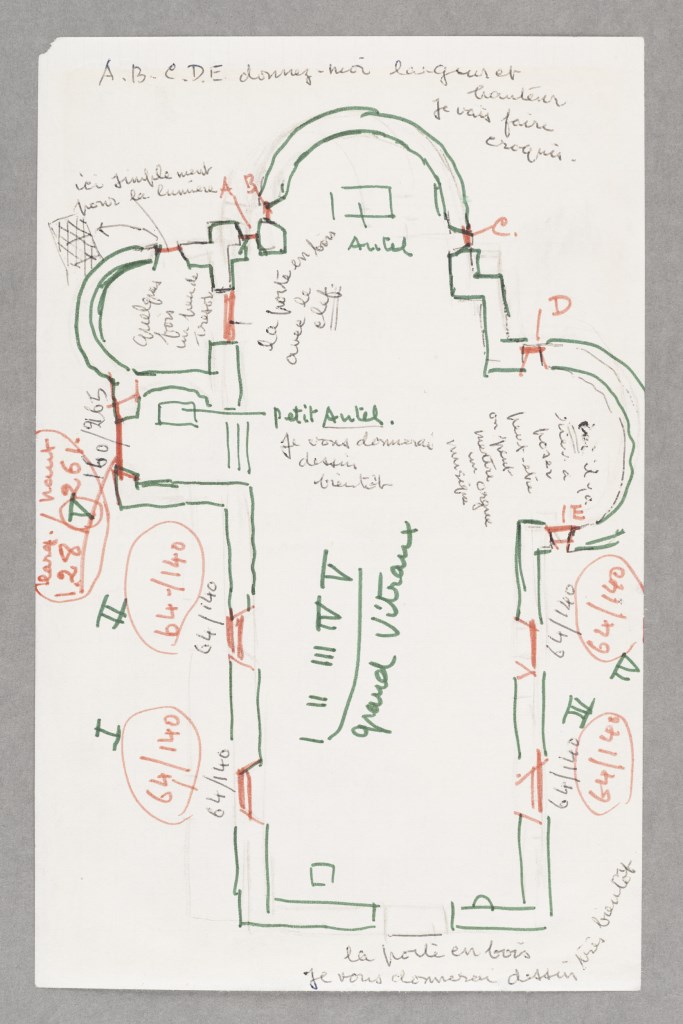 A.B-C.D.E donnez-moi largeur et
hauteur
Je vais faire
croquis.
ici simplement
pour la lumière
A
B
C.
D
E
Autel
la porte en bois
avec le
clef.
quelques
fois
un peu de
tresor
petit Autel.
Je vous donnerai
dessin
bientôt
ici il y a
rien à
poser
peut-être
on peut
mettre
un orgue
musique
160/265
larg. / haut
128 / 261.
V
II
64/140
64/140
I
64/140
64/140
I II III IV V
grand Vitraux
64/140
64/140
IV
III
64/140
64/140
la porte en bois
Je vous donnerai dessin très bientôt